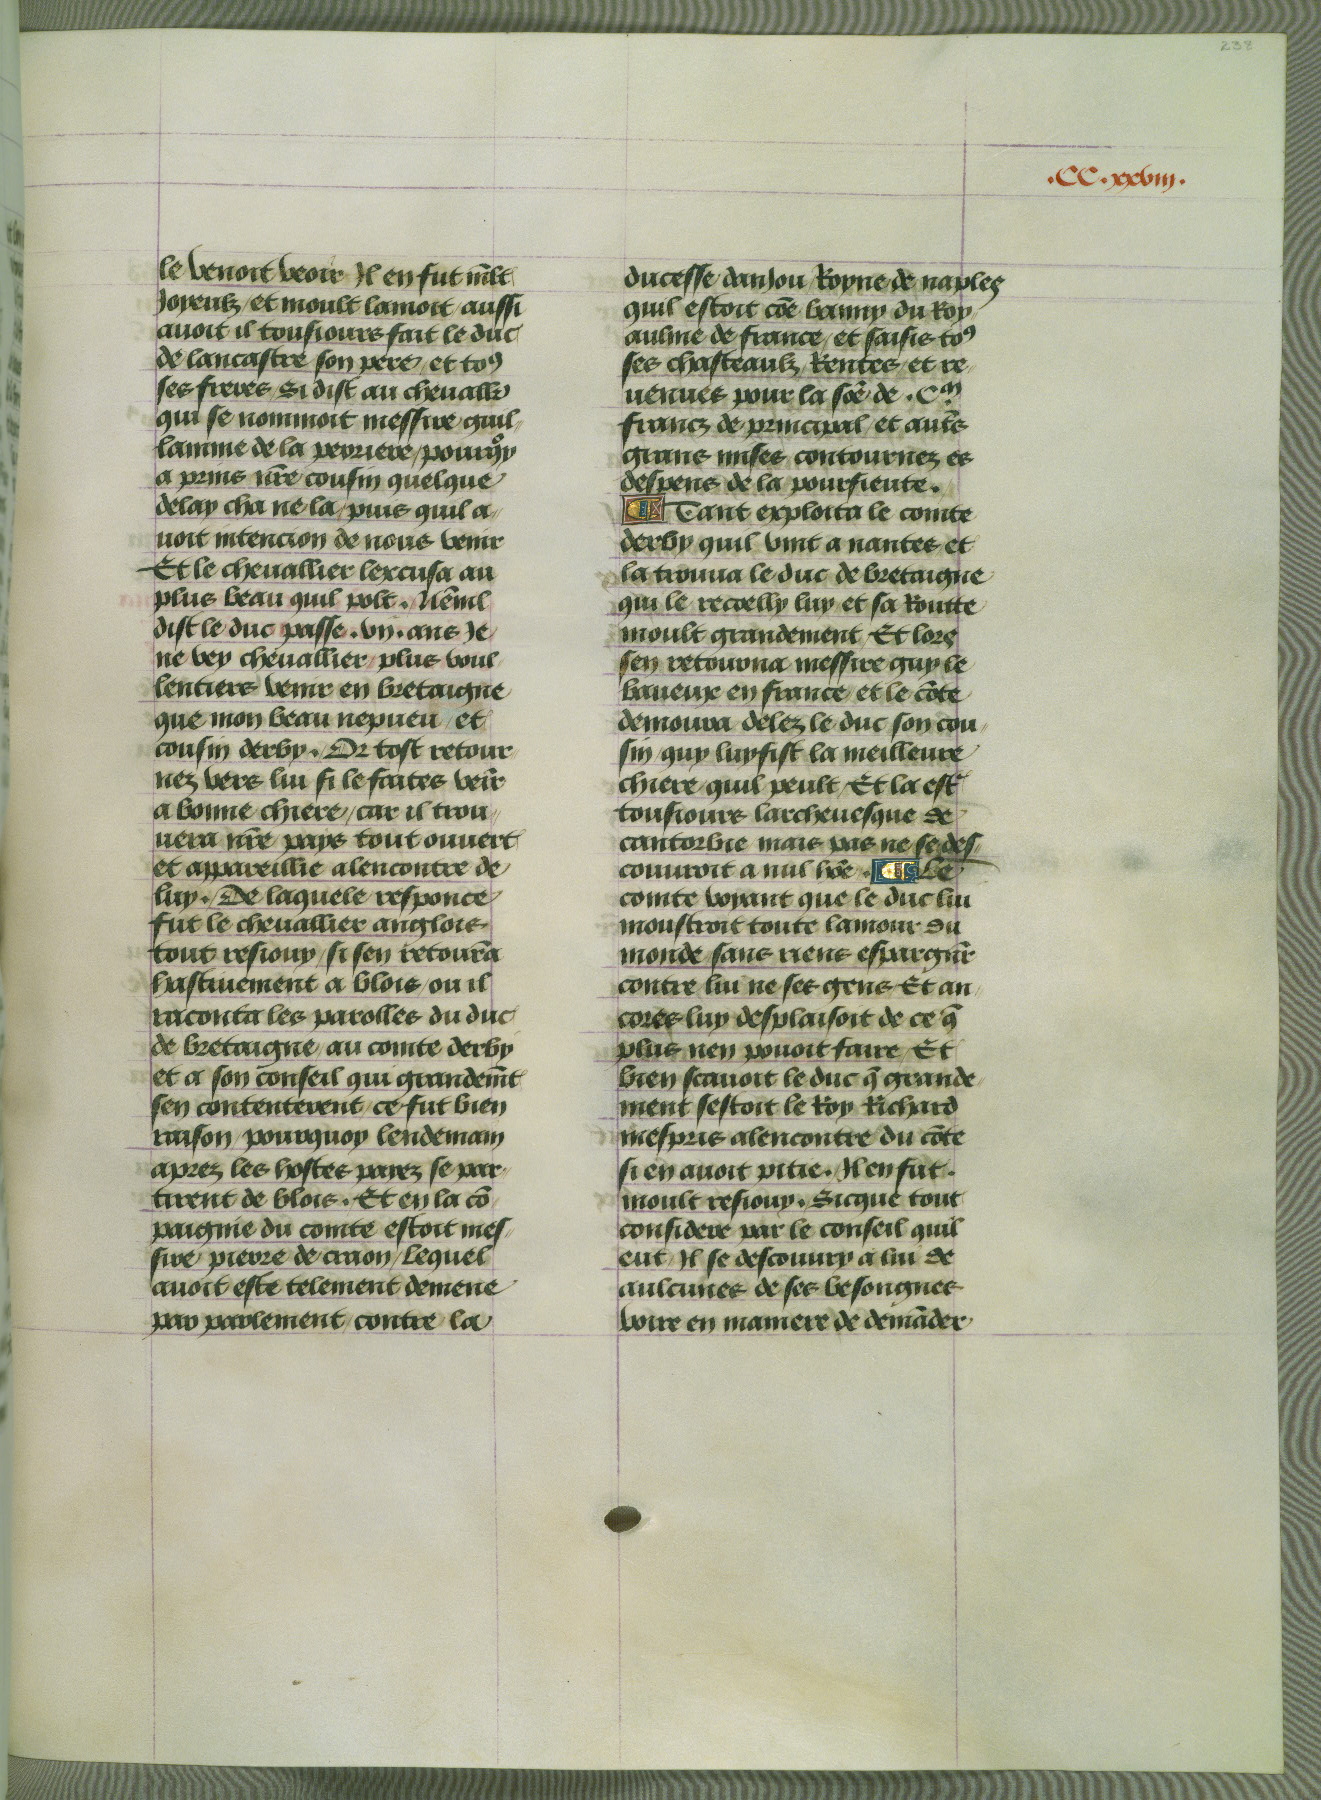 238
.CC.xxviii.
le venoit veoir Il en fut mlt
Joyeulz / et moult lamoit aussi
auoit il tousiours fait le duc
de lancastre son pere / et to9
ses freres Si dist au cheuallr
qui se nommoit messire guil¬
lamme de la perriere / pourqoy
a prins nre cousin quelque
delay cha ne la / puis quil a¬
uoit intencion de nous venir
Et le cheuallier lexcusa au
plus beau quil polt. Nenil
dist le duc passe .vij. ans Je
ne vey cheuallier plus voul¬
lentiers venir en bretaigne
que mon beau nepueu et
cousin derby. Or tost retour¬
nez vers lui si le faites venir
a bonne chiere / car il trou¬
uera nre pays tout ouuert
et appareillie alencontre de
luy. De laquele responce
fut le cheuallier anglois
tout resiouy / si sen retourna
hastiuement a blois / ou il
raconta les parolles du duc
de bretaigne / au comte derby
et a son conseil qui grandemt
sen contenterent / ce fut bien
raison / pourquoy lendemain
aprez les hostes paiez se par¬
tirent de blois. Et en la co
paignie du comte estoit mes¬
sire pierre de craon / Lequel
auoit este telement demene
par parlement / contre la
ducesse danJou Royne de naples
quil estoit coe banny du Roy
aulme de france / et saisis to9
ses chasteaulz / Rentes / et re
uenues pour la soe de .Cm.
francz de principal / et aultres
grans mises contournez es
despens de la poursieute.
Tant exploita le comte
derby quil vint a nantes et
la trouua le duc de bretaigne
qui le recoelly luy et sa Routte
moult grandement Et lors
sen retourna messire guy le
baueux en france / et le cote
demoura delez le duc son cou¬
sin quy luy fist la meilleure
chiere quil peult Et la est
tousiours larcheuesque de
cantorbie mais pas ne se des
couuroit a nul hoe. Le
comte voyant que le duc lui
moustroit toute lamour du
monde sans riens espargnr
contre lui ne ses gens Et an¬
cores luy desplaisoit de ce q̃
plus nen pouoit faire / Et
bien scauoit le duc q̃ grande¬
ment sestoit le Roy Richard
mespris alencontre du cote
si en auoit pitie. Il en fut.
moult resiouy. Sicque tout
considere par le conseil quil
eut Il se descouury a lui de
aulcunes de ses besongnes
voire en maniere de demader